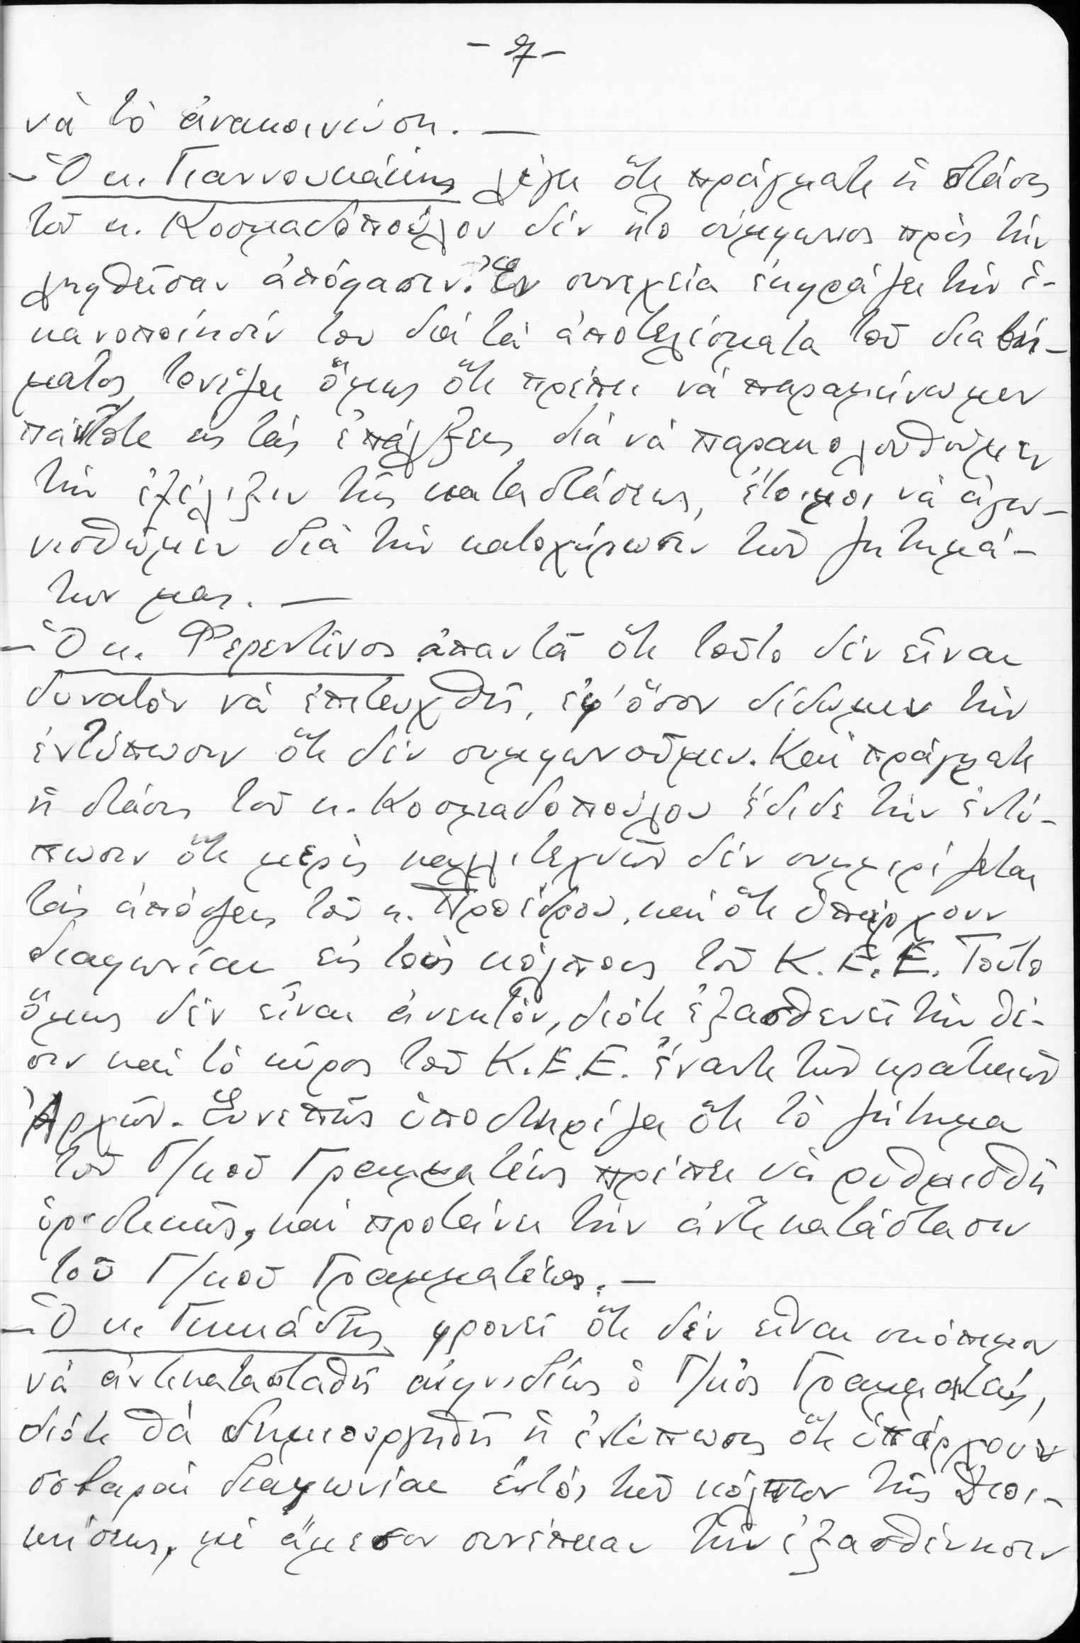 - 7 -
νὰ τὸ ἀνακοινώση. —
- Ὁ κ. Γιαννουκάκης λέγει ὅτι πράγματι ἡ στάσις
τοῦ κ. Κοσμαδοπούλου δὲν ἦτο σύμφωνος πρὸς τὴν
ληφθεῖσαν ἀπόφασιν. Ἐν συνεχεία ἐκφράζει τὴν ἱ-
κανοποίησίν του διὰ τὰ ἀποτελέσματα τοῦ διαβή-
ματος, τονίζει ὅμως ὅτι πρέπει νὰ παραμείνωμεν
πάντοτε εἰς τὰς ἐπάλξεις, διὰ νὰ παρακολουθοῦμεν
τὴν ἐξέλιξιν τῆς καταστάσεως, ἕτοιμοι νὰ ἀγω-
νισθῶμεν διὰ τὴν κατοχύρωσιν τῶν ζητημά-
των μας. —
- Ὁ κ. Φερεντῖνος ἀπαντᾶ ὅτι τοῦτο δὲν εἶναι
δυνατὸν νὰ ἐπιτευχθῆ, ἐφ' ὅσον δίδωμεν τὴν
ἐντύπωσιν ὅτι δὲν συμφωνοῦμεν. Καὶ πράγματι
ἡ στάσις τοῦ κ. Κοσμαδοπούλου ἔδιδε τὴν ἐντύ-
πωσιν ὅτι μερὶς καλλιτεχνῶν δὲν συμμερίζεται
τὰς ἀπόψεις τοῦ κ. Προέδρου, καὶ ὅτι ὑπάρχουν
διαφωνίαι εἰς τοὺς κόλπους τοῦ Κ.Ε.Ε. Τοῦτο
ὅμως δὲν εἶναι ἀνεκτόν, διότι ἐξασθενεῖ τὴν θέ-
σιν καὶ τὸ κῦρος τοῦ Κ.Ε.Ε. ἔναντι τῶν κρατικῶν
Ἀρχῶν. Συνεπῶς ὑποστηρίζει ὅτι τὸ ζήτημα
τοῦ Γ/κοῦ Γραμματέως πρέπει νὰ ρυθμισθῆ
ὁριστικῶς, καὶ προτείνει τὴν ἀντικατάστασιν
τοῦ Γ/κοῦ Γραμματέως. —
- Ὁ κ. Γικκάδης φρονεῖ ὅτι δὲν εἶναι σκόπιμον
νὰ ἀντικατασταθῆ αἰφνιδίως ὁ Γ/κὸς Γραμματεύς,
διότι θὰ δημιουργηθῆ ἡ ἐντύπωσις ὅτι ὑπάρχουν
σοβαραὶ διαφωνίαι ἐντὸς τῶν κόλπων τῆς Διοι-
κήσεως, μὲ ἄμεσον συνέπειαν τὴν ἐξασθένησιν